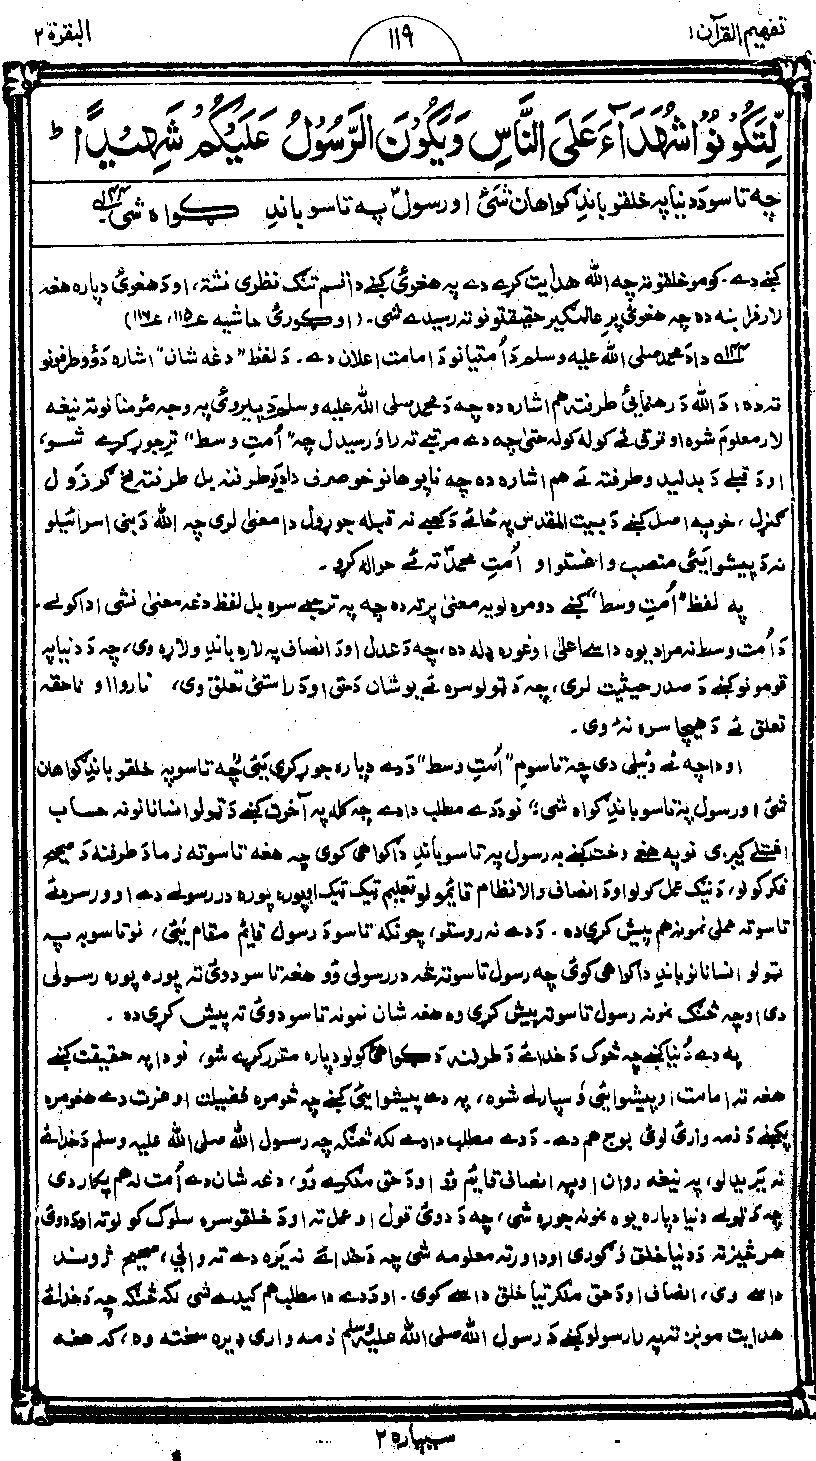 تفهیم القرآن:
۱۱۹
البقرة ۲
لِّتَكُوْنُوْا شُهَدَآءَ عَلَى النَّاسِ وَيَكُوْنَ الرَّسُوْلُ عَلَيْكُمْ شَهِيْدًا ط
چه تاسو دَ دنیا په خلقو باندِ ګواهان شئ او رسولؐ په تاسو باندِ ګواه شی ۱۴۴
کښے دے۔ کومو خلقو ته چه الله هدایت کړے دے په هغوئ کښے دا قسم تنګ نظری نشته، او دَ هغوئ دپاره هغه
لار فرا بنه ده چه هغوئ پرِ عالمګیر حقیقتونو ته رسیدے شی۔ (او ګورئ حاشیه ع۱۱۵، ع۱۱۷)
۱۴۴ دا دَ محمد صلی الله علیه وسلم دَ اُمتیانو دَ امامت اعلان دے۔ دَ لفظ "دغه شان" اشاره دَوُو طرفونو
ته ده؛ دَ الله دَ رهنمائی طرف ته هم اشاره ده چه دَ محمد صلی الله علیه وسلم دَ پیروئ په وجه مؤمنانو ته نیغه
لار معلومه شوه او ترقی ئے کوله کوله حتیٰ چه دے مرتبے ته را ورسیدل چه "اُمتِ وسط" ترِ جوړ کړے شو،
او دَ قبلے دَ بدلیدو طرف ته ئے هم اشاره ده چه ناپوهانو خو صرف دا دیو طرف نه بل طرف ته مخ ګرزول
ګنړل، خو په اصل کښے دَ بیت المقدس په ځائے دَ کعبے نه قبله جوړول دا معنیٰ لری چه الله دَ بنی اسرائیلو
نه دَ پیشوایئ منصب واخستلو او اُمتِ محمدؐ ته ئے حواله کړو۔
په لفظ "اُمتِ وسط" کښے دومره لویه معنیٰ پرته ده چه په ترجمے سره بل لفظ دغه معنیٰ نشی ادا کولے۔
دَ اُمت وسط نه مراد یوه داسے اعلیٰ او غوره ډله ده، چه دَ عدل او دَ انصاف په لاره باندِ ولاړه وی، چه دَ دنیا په
قومونو کښے دَ صدر حیثیت لری، چه دَ ټولو سره ئے یو شان دَ حق او دَ راستئ تعلق وی، ناروا او ناحقه
تعلق ئے دَ هیچا سره نهٔ وی۔
او دا چه ئے وئیلی دی چه تاسو مِ "اُمتِ وسط" دَ دے دپاره جوړ کړی یئی "چه تاسو په خلقو باندِ ګواهان
شئ او رسول په تاسو باندِ ګواه شی" نو دَ دے مطلب دا دے چه کله په آخرت کښے دَ ټولو انسانانو نه حساب
اخستلے کیږی نو په هغه وخت کښے به رسول په تاسو باندِ دا ګواهی کوی چه هغه تاسو ته زما دَ طرف نه دَ صحیح
فکر کولو، دَ نیک عمل کولو او دَ انصاف والا نظام قائمولو تعلیم ټیک ټیک او پوره پوره در رسولے دے او ورسره ئے
تاسو ته عملی نمونه هم پیش کړی ده۔ دَ دے نه روستو، چونکه تاسو دَ رسول قائم مقام یئی، نو تاسو به په
ټولو انسانانو باندِ دا ګواهی کوئ چه رسول تاسو ته څه در رسولی وُو هغه تاسو دوئ ته پوره پوره رسولی
دی او چه څنګه نمونه رسول تاسو ته پیش کړی وه هغه شان نمونه تاسو دوئ ته پیش کړی ده۔
په دے دُنیا کښے چه څوک دَ خدائے دَ طرف نه دَ ګواهئ کولو دپاره مقرر کړے شو، نو دا په حقیقت کښے
هغه ته امامت او پیشوایئ وَر سپارلے شوه، په دے پیشوایئ کښے چه څومره فضیلت او عزت دے هغومره
پکښے دَ ذمه وارئ لوئ بوج هم دے۔ دَ دے مطلب دا دے لکه څنګه چه رسول الله صلی الله علیه وسلم دَ خدائے
نه یَریدلو، په نیغه روان او په انصاف قائم وُو او دَ حق ملګرے وُو، دغه شان دے اُمت له هم پکار دی
چه دَ ټولے دنیا دپاره یوه نمونه جوړه شی، چه دَ دوئ قول او عمل ته او دَ خلقو سره سلوک کولو ته او دَ دوئ
هر څیز ته دَ دنیا خلق وګوری او ورته معلومه شی چه دَ خدائے نه یَره دے ته وائی، صحیح ژوند
داسے وی، انصاف او دَ حق ملګرتیا خلق داسے کوی۔ او دَ دے دا مطلب هم کیدے شی لکه څنګه چه دَ خدائے
هدایت مونږ ته په رارسولو کښے دَ رسول الله صلی الله علیه وسلم ذمه واری ډیره سخته وه، که هغه
سیپاره ۲